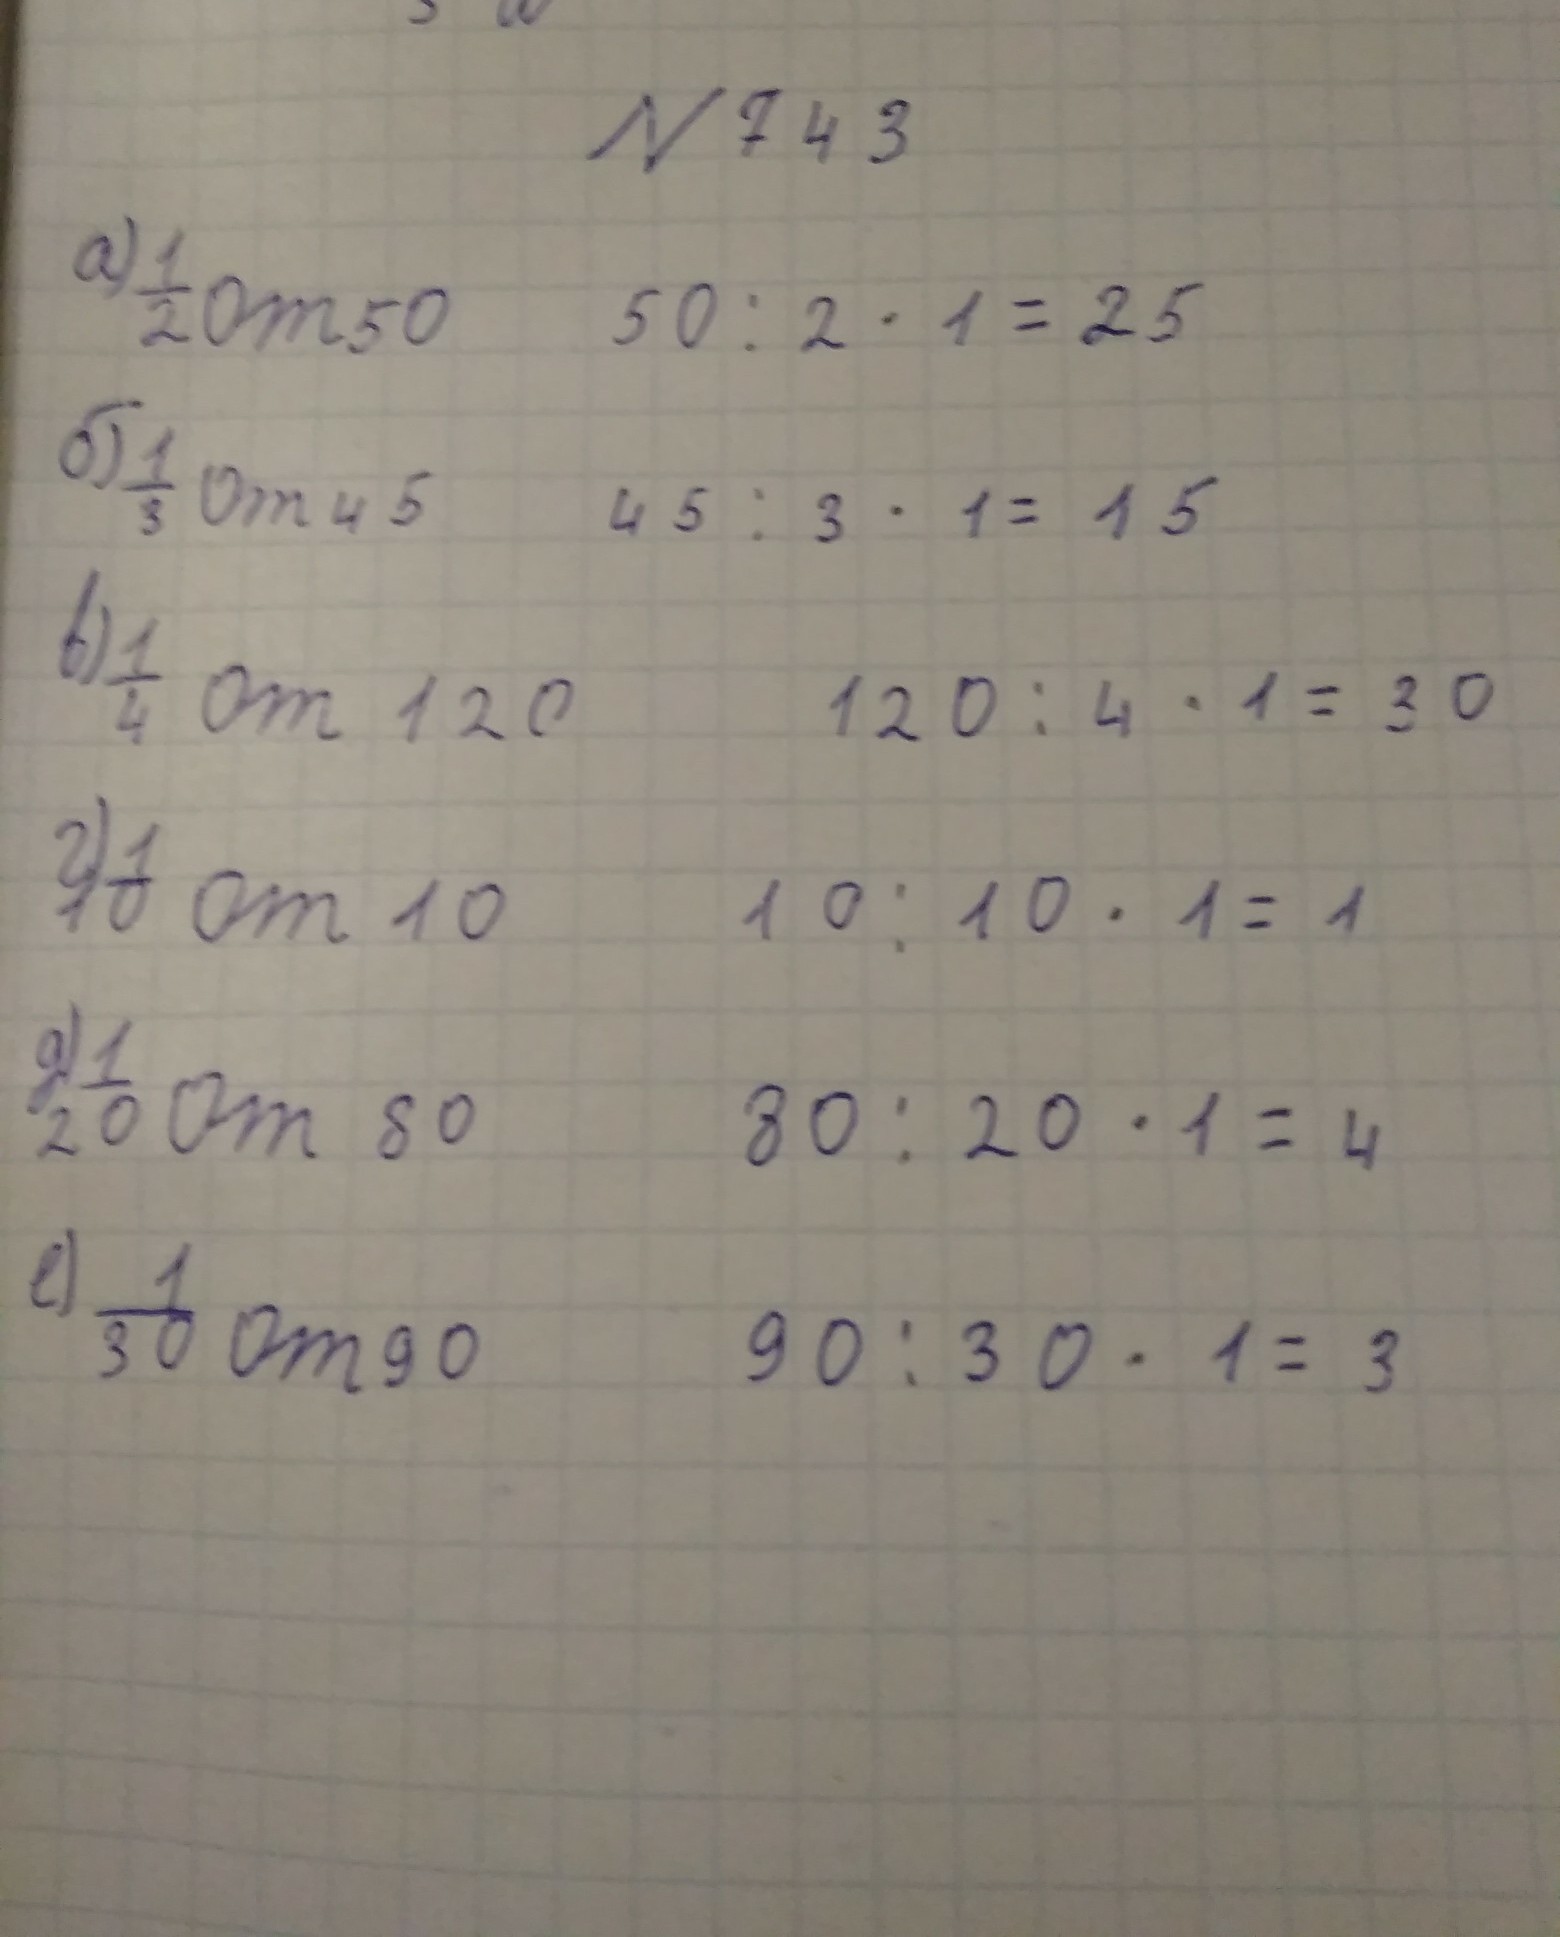 N 743
а) 1/2 От 50 50 : 2 · 1 = 25
б) 1/3 От 45 45 : 3 · 1 = 15
в) 1/4 От 120 120 : 4 · 1 = 30
г) 1/10 От 10 10 : 10 · 1 = 1
д) 1/20 От 80 80 : 20 · 1 = 4
е) 1/30 От 90 90 : 30 · 1 = 3